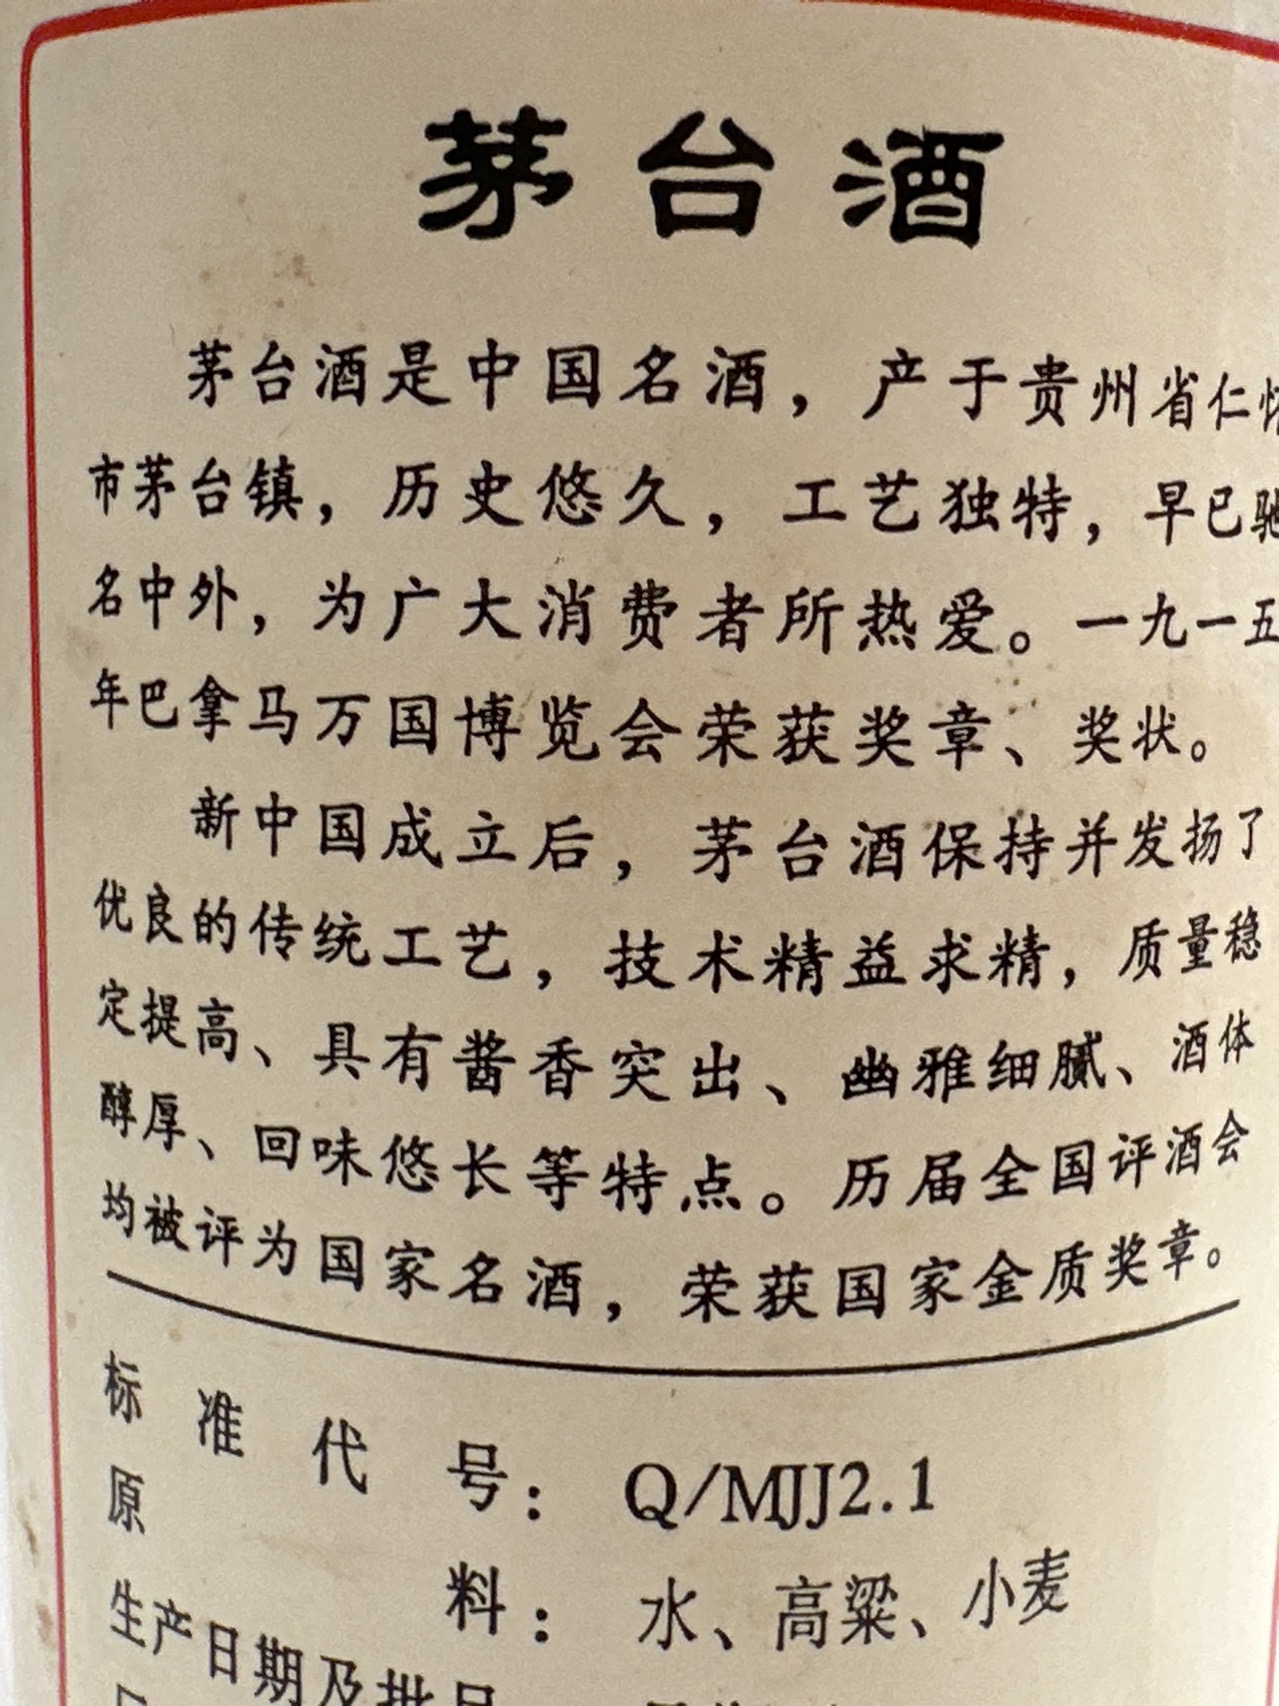 茅台酒
茅台酒是中国名酒，产于贵州省仁怀
市茅台镇，历史悠久，工艺独特，早已驰
名中外，为广大消费者所热爱。一九一五
年巴拿马万国博览会荣获奖章、奖状。
新中国成立后，茅台酒保持并发扬了
优良的传统工艺，技术精益求精，质量稳
定提高、具有酱香突出、幽雅细腻、酒体
醇厚、回味悠长等特点。历届全国评酒会
均被评为国家名酒，荣获国家金质奖章。
标准代号：Q/MJJ2.1
原料：水、高粱、小麦
生产日期及批号